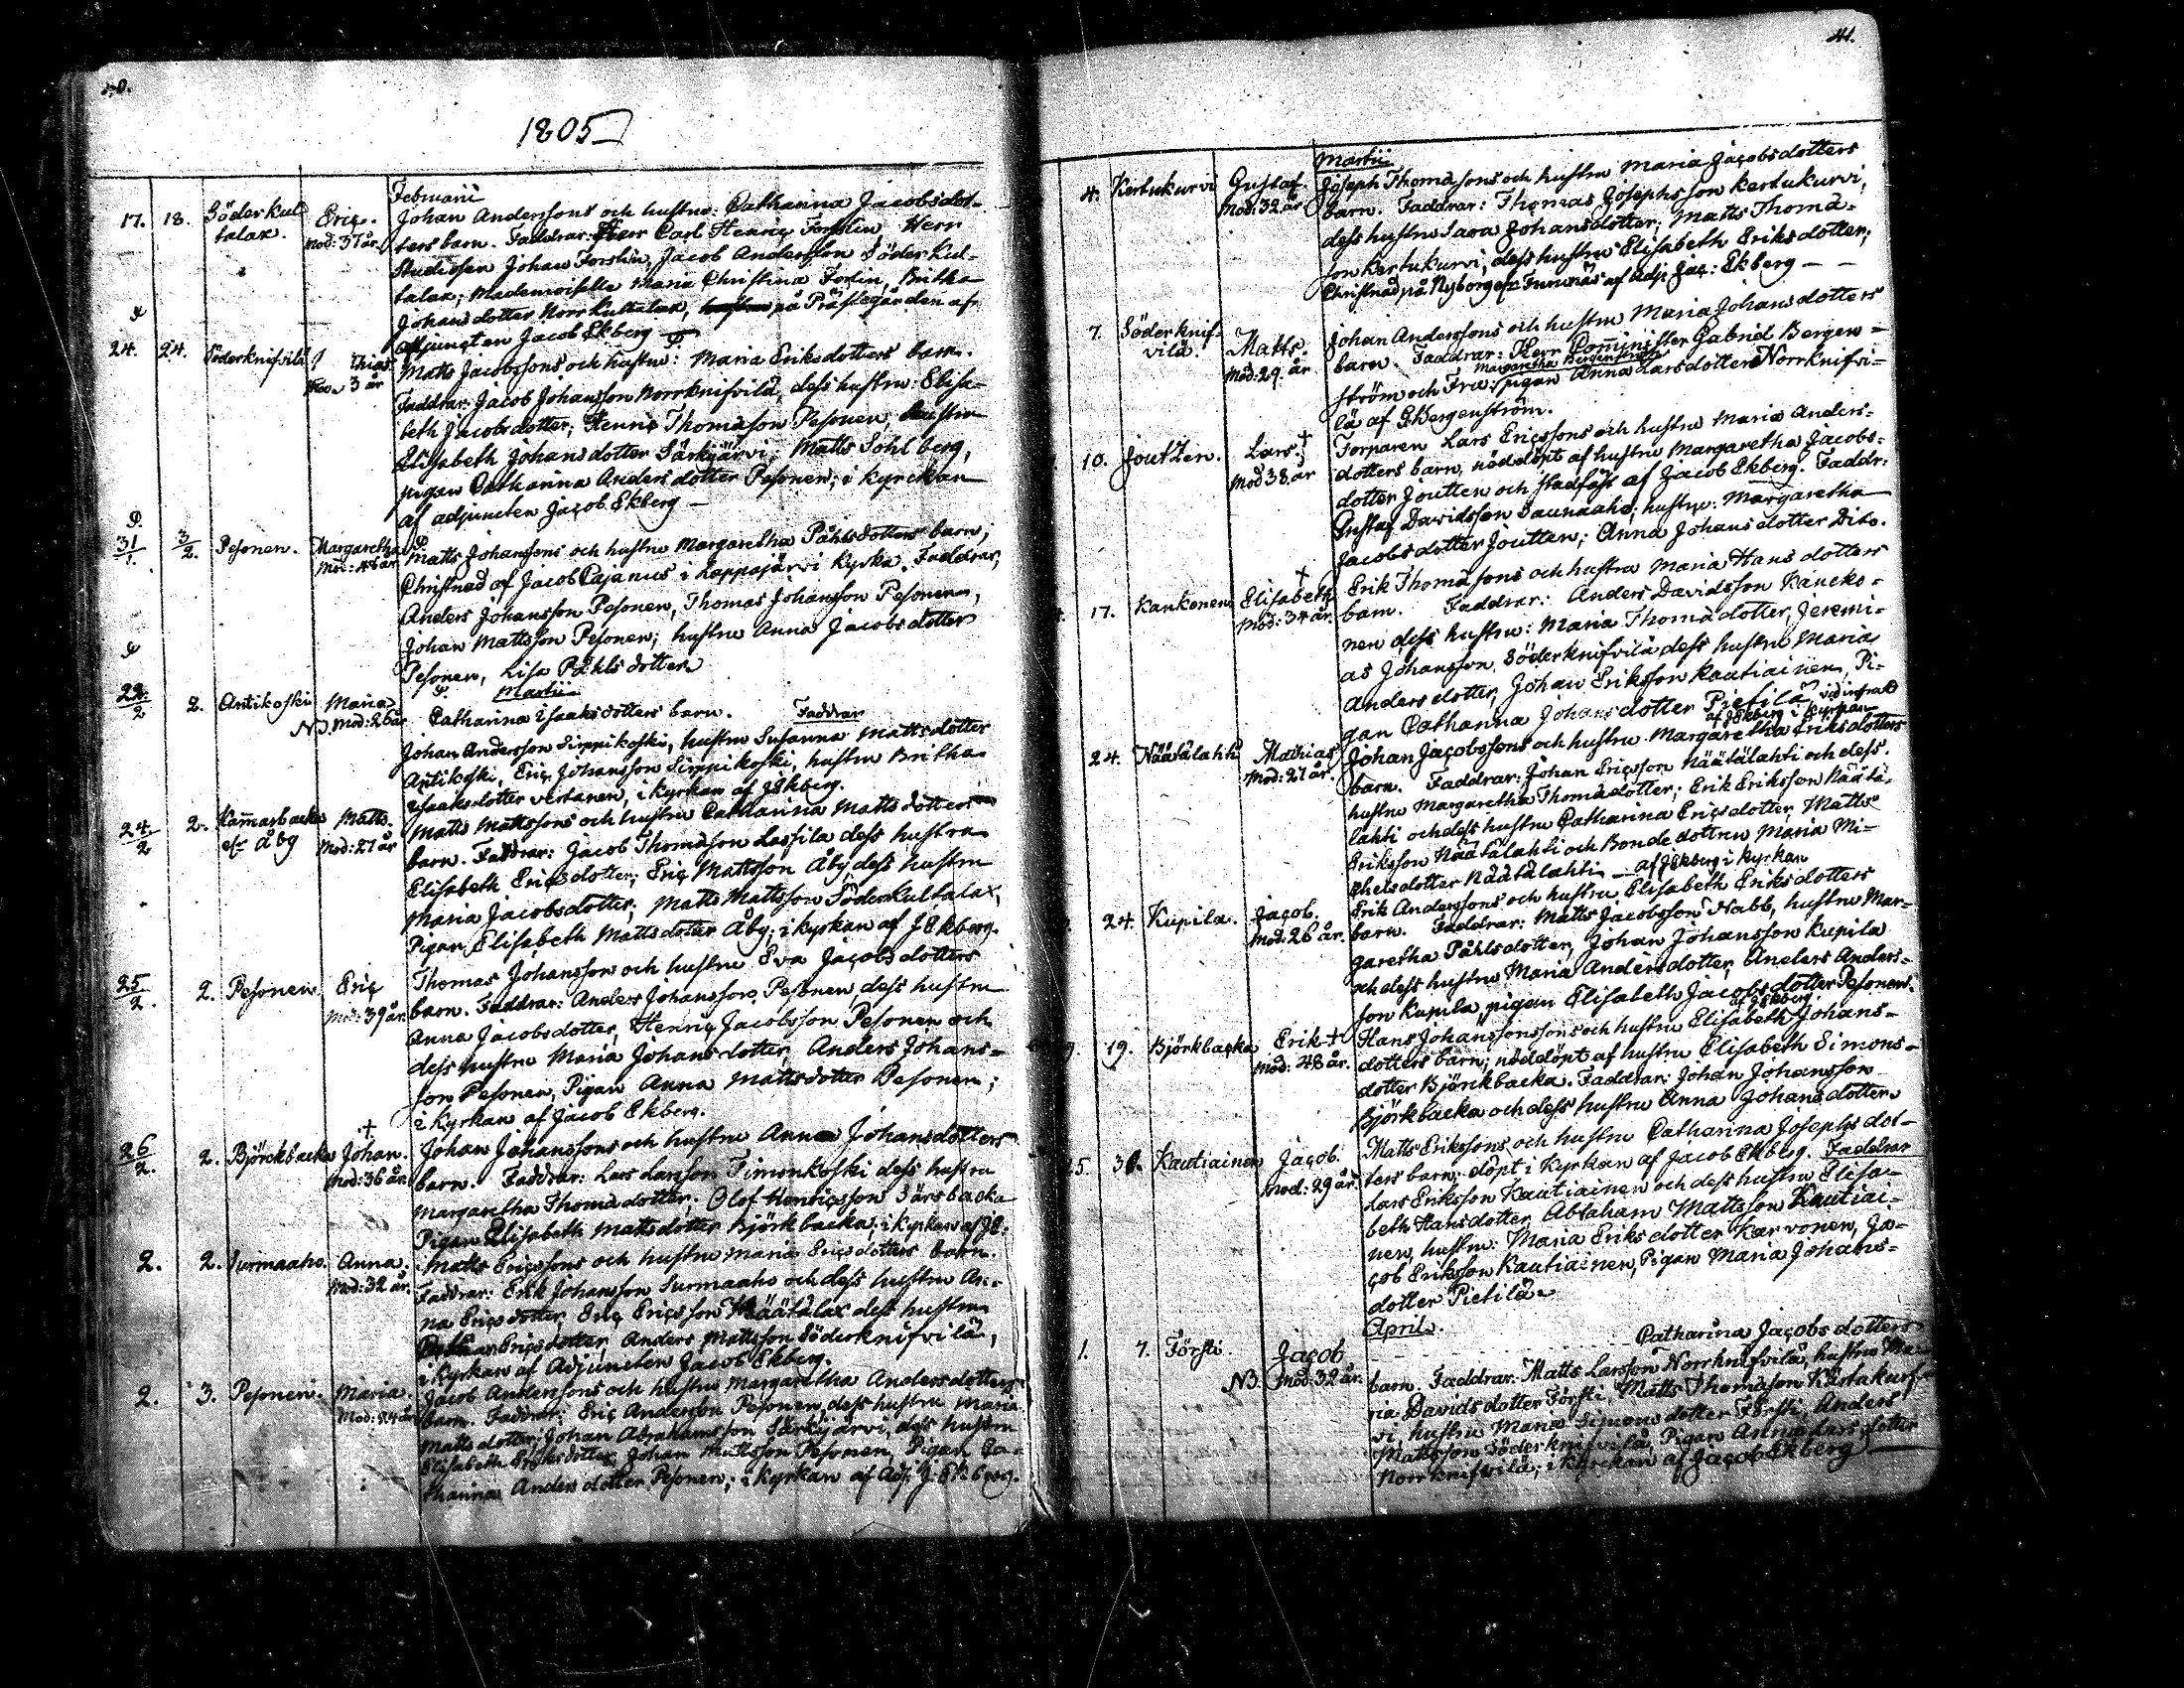 40.
1805
Februarii
17. 18. Söderkul Eric. Johan Anderssons och hustru: Catharina Jacobsdot-
talax. Mod: 37 år ters barn. Faddrar: Herr Carl Henric Forslin Herr
Studiosen Johan Forslin, Jacob Andersson Söderkul-
talax; Mademoiselle Maria Christina Forslin, Britha
Johansdotter Norrkultalax, på Prästegården af
adjuncten Jacob Ekberg
24. 24. Söderknifvilä thias Matts Jacobssons och hustru: Maria Eriksdotters barn.
3 år Faddrar: Jacob Johansson Norrknifvilä, dess hustru: Elisa-
beth Jacobsdotter; Henric Thomasson Pesonen, hustru
Elisabeth Johansdotter Särkijärvi; Matts Sohlberg,
pigan Catharina Andersdotter Pesonen; i kyrckan
af adjuncten Jacob Ekberg —
31/1. 3/2. Pesonen. Margaretha Matts Johanssons och hustru Margaretha Påhlsdotters barn;
Mod: 46 år Christnad af Jacob Cajanus i Lappajärvi Kyrka. Faddrar;
Anders Johansson Pesonen, Thomas Johansson Pesonen,
Johan Mattsson Pesonen; hustru Anna Jacobsdotter
Pesonen, Lisa Påhlsdotter
Martii
22/2 2. Antikoski Maria Catharina Isaaksdotters barn. Faddrar
NB Mod: 26 år Johan Andersson Sippikoski, hustru Susanna Mattsdotter
Antikoski, Eric Johansson Sippikoski, hustru Britha
Isaaksdotter Vertanen, i kyrkan af JEkberg.
24/2 2. Kamarbacka Matts. Matts Mattssons och hustru Catharina Mattsdotters
åbg Mod: 27 år barn. Faddrar: Jacob Thomasson Lassila dess hustru
Elisabeth Ericsdotter; Eric Mattsson Åby, dess hustru
Maria Jacobsdotter; Matts Mattsson Söderkultalax,
Pigan Elisabeth Mattsdotter Åby; i kyrkan af JEkberg.
25/2. 2. Pesonen Eric Thomas Johansson och hustru Eva Jacobsdotters
Mod: 39 år. barn. Faddrar: Anders Johansson Pesonen, dess hustru
Anna Jacobsdotter, Henric Jacobsson Pesonen och
dess hustru Maria Johansdotter, Anders Johans-
son Pesonen, Pigan Anna Mattsdotter Pesonen;
i Kyrkan af Jacob Ekberg.
26/2. 2. Björckbacka Johan. Johan Johanssons och hustru Anna Johansdotters
Mod: 36 år. barn. Faddrar: Lars Larsson Timonkoski dess hustru
Margaretha Thomasdotter, Olof Henricsson Särsbacka
Pigan Elisabeth Mattsdotter Björkbacka; i kyrkan af JE.
2. 2. Surmaaho. Anna. Matts Ericssons och hustru Maria Ericsdotters barn.
Mod: 32 år. Faddrar: Erik Johansson Surmaaho och dess hustru An-
na Ericsdotter, Eric Ericsson Näätälax dess hustru
Ericsdotter, Anders Mattsson Söderknifvilä,
i Kyrkan af Adjuncten Jacob Ekberg.
2. 3. Pesonen. Maria. Jacob Anderssons och hustru Margaretha Andersdotters
barn. Faddrar: Eric Andersson Pesonen, dess hustru Maria
Mattsdotter, Johan Abrahamsson Särkijärvi, dess hustru
Elisabeth Eriksdotter, Johan Mattsson Pesonen, Pigan Ca-
tharina Andersdotter Pesonen; i kyrkan af Adj: J: Ekberg.
41.
Martii
4. Kertukurvi Gustaf. Joseph Thomasons och hustru Maria Jacobsdotters
Mod: 32 år barn. Faddrar: Thomas Josephsson Kertukurvi,
dess hustru Sara Johansdotter; Matts Thoma-
son Kertukurvi, dess hustru Elisabeth Eriksdotter;
Christnad på Nyborg af Adj: Jac: Ekberg — —
7. Söderknif- Matts. Johan Anderssons och hustru Maria Johansdotters
vilä. Mod: 29. år barn. Faddrar: Herr Cominister Gabriel Bergen-
Margaretha Bergenström
ström och Fru: pigan Anna Larsdotter Norrknifvi-
lä af GBergenström.
10. Joutzen. Lars. † Torparen Lars Ericssons och hustru Maria Anders-
Mod 38 år dotters barn, nöddöpt af hustru Margaretha Jacobs-
dotter Joutten och stadfäst af Jacob Ekberg. Faddr:
Gustaf Davidsson Saunaaho; hustru: Margaretha
Jacobsdotter Joutten; Anna Johansdotter Dito.
17. Kankonen Elisabeth † Erik Thomasons och hustru Maria Hansdotters
Mod: 34 år. barn. Faddrar: Anders Davidsson Kancko-
nen dess hustru: Maria Thomadotter, Jeremi-
as Johansson Söderknifvilä dess hustru Maria
Andersdotter, Johan Eriksson Kautiainen, Pi-
gan Catharina Johansdotter Pietilä
af JEkberg i kyrkan
24. Näätälahti Mathias Johan Jacobssons och hustru Margaretha Eriksdotters
Mod: 27 år. barn. Faddrar: Johan Ericsson Näätälahti och dess
hustru Margaretha Thomadotter; Erik Eriksson Näätä-
lahti och dess hustru Catharina Ericsdotter, Matts
Eriksson Näätälahti och Bondedottren Maria Mi-
chelsdotter Näätälahti — af JEkberg i kyrkan
24. Kupila. Jacob. Erik Anderssons och hustru Elisabeth Eriksdotters
Mod: 26 år. barn. Faddrar: Matts Jacobsson Nabb, hustru Mar-
garetha Påhlsdotter, Johan Johansson Kupila
och dess hustru Maria Andersdotter, Anders Anders-
son Kupila, pigan Elisabeth Jacobsdotter Pesonen.
af JEkberg.
19. Björkbacka Erik † Hans Johanssonssons och hustru Elisabeth Johans-
Mod: 48 år. dotters barn; nöddöpt af hustru Elisabeth Simons-
dotter Björckbacka. Faddrar: Johan Johansson
Björkbacka och dess hustru Anna Johansdotter
25. 30. Kautiainen Jacob. Matts Erikssons och hustru Catharina Josephsdot-
Mod: 29 år. ters barn; döpt i Kyrkan af Jacob Ekberg. Faddrar
Lars Eriksson Kautiainen och dess hustru Elisa-
beth Hansdotter, Abraham Mattsson Kautiai-
nen, hustru: Maria Eriksdotter Karvonen, Ja-
cob Eriksson Kautiainen, Pigan Maria Johans-
dotter Pietilä
April.
1. 7. Försti. Jacob — — — Catharina Jacobsdotters
NB. Mod: 32 år. barn. Faddrar: Matts Larsson Norrknifvilä, hustru Ma-
ria Davidsdotter Försti, Matts Thomason Kertukur-
vi, hustru Maria Simonsdotter Försti, Anders
Mattsson Söderknifvilä, Pigan Anna Larsdotter
Norrknifvilä; i kyrckan af Jacob Ekberg —